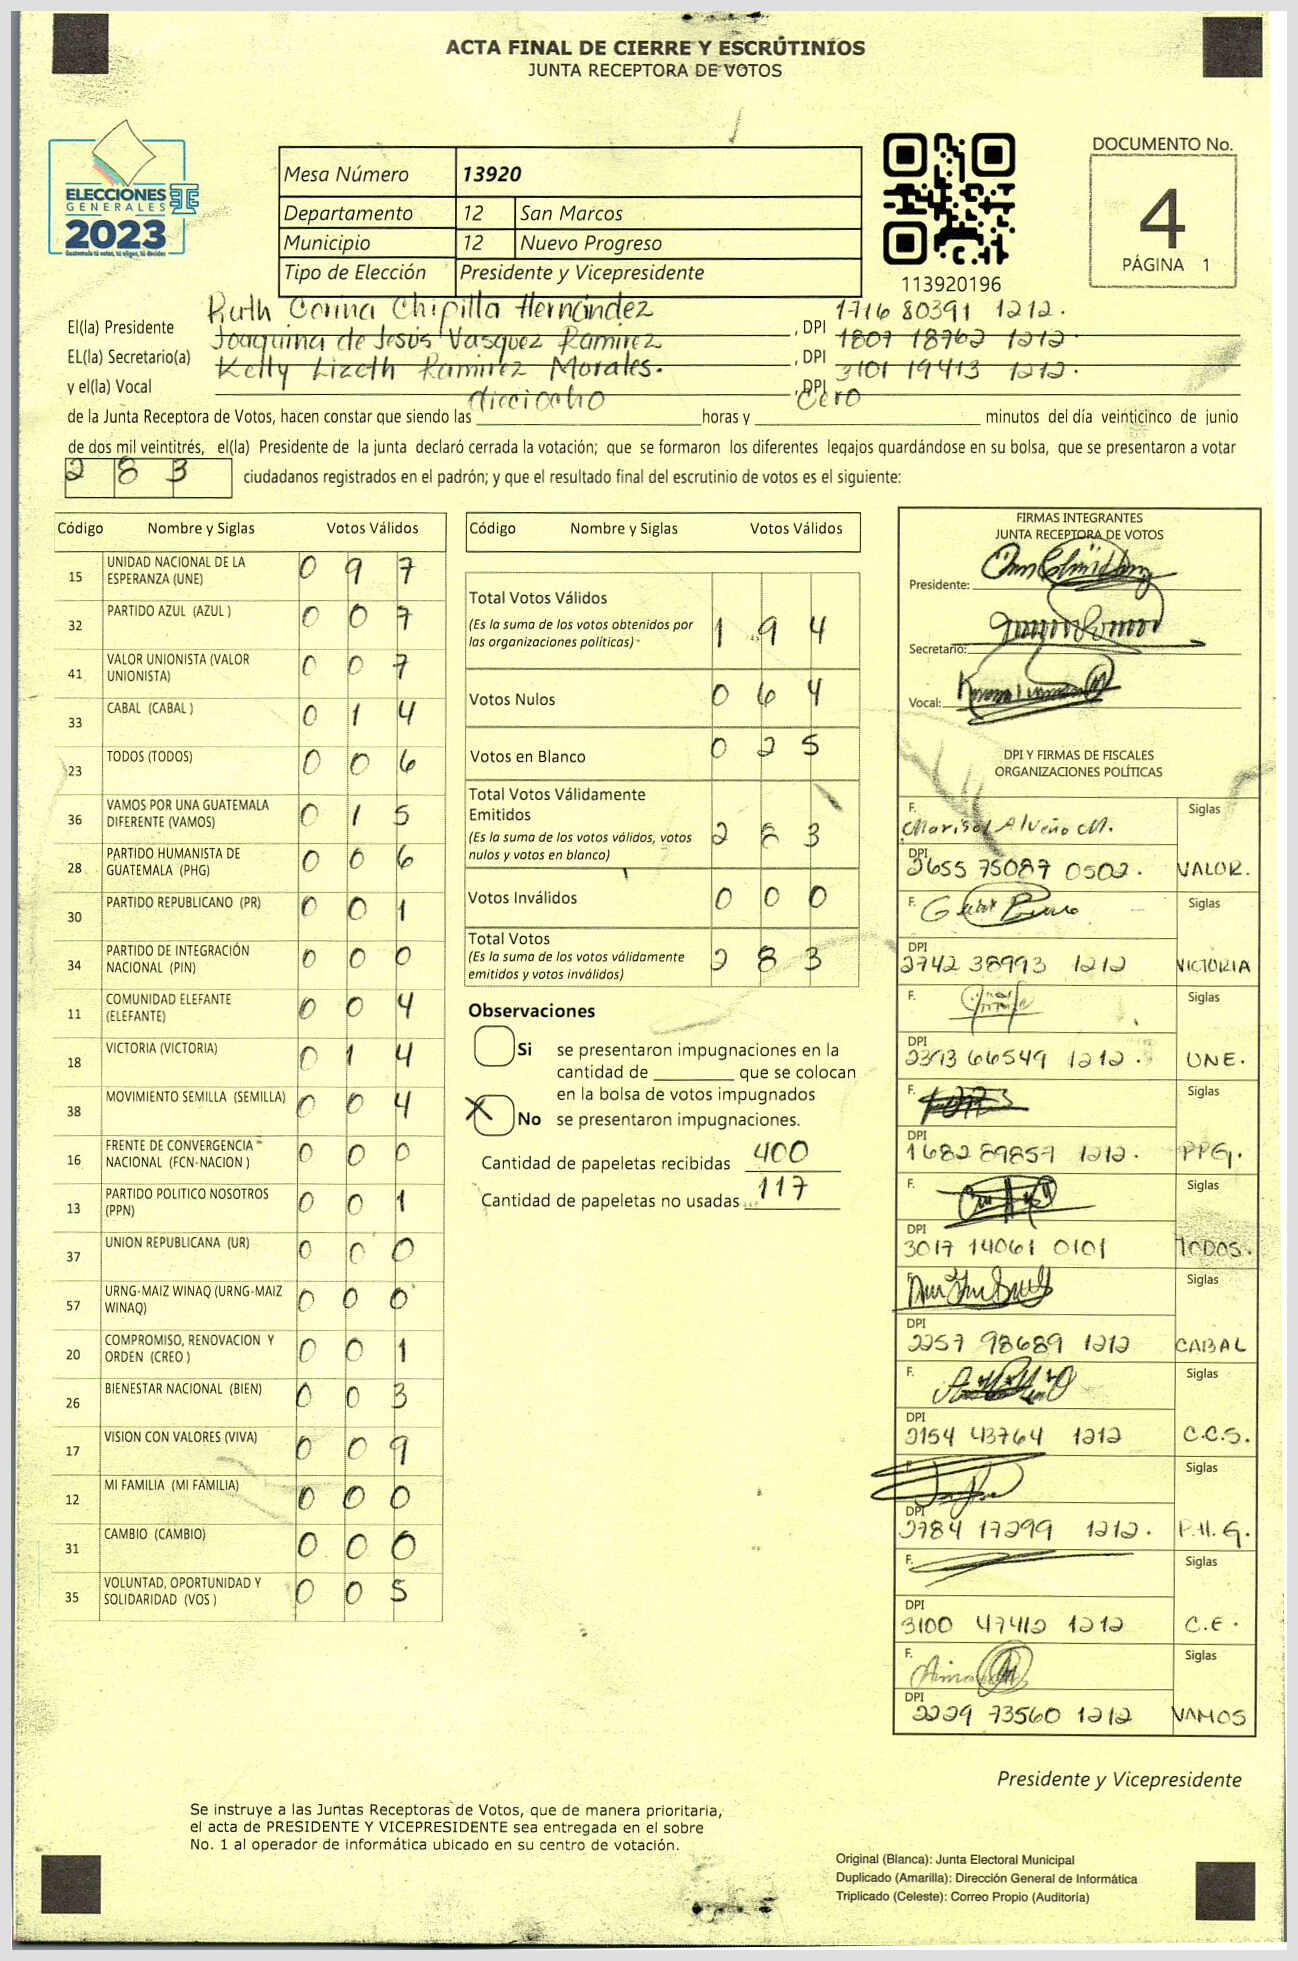 ACTA FINAL DE CIERRE Y ESCRÚTINIOS
JUNTA RECEPTORA DE VOTOS
ELECCIONES
GENERALES
2023
Guatemala tú votas, tú eliges, tú decides
Mesa Número 13920
Departamento 12 San Marcos
Municipio 12 Nuevo Progreso
Tipo de Elección Presidente y Vicepresidente
113920196
DOCUMENTO No.
4
PÁGINA 1
El(la) Presidente Ruth Corina Chipilla Hernández , DPI 1716 80391 1212.
EL(la) Secretario(a) Joaquina de Jesús Vasquez Ramirez , DPI 1807 18762 1212.
y el(la) Vocal Kelly Lizeth Ramirez Morales. , DPI 3101 19413 1212.
de la Junta Receptora de Votos, hacen constar que siendo las dieciocho horas y Cero minutos del día veinticinco de junio
de dos mil veintitrés, el(la) Presidente de la junta declaró cerrada la votación; que se formaron los diferentes legajos quardándose en su bolsa, que se presentaron a votar
283 ciudadanos registrados en el padrón; y que el resultado final del escrutinio de votos es el siguiente:
Código Nombre y Siglas Votos Válidos
15 UNIDAD NACIONAL DE LA ESPERANZA (UNE) 0 9 7
32 PARTIDO AZUL (AZUL ) 0 0 7
41 VALOR UNIONISTA (VALOR UNIONISTA) 0 0 7
33 CABAL (CABAL ) 0 1 4
23 TODOS (TODOS) 0 0 6
36 VAMOS POR UNA GUATEMALA DIFERENTE (VAMOS) 0 1 5
28 PARTIDO HUMANISTA DE GUATEMALA (PHG) 0 0 6
30 PARTIDO REPUBLICANO (PR) 0 0 1
34 PARTIDO DE INTEGRACIÓN NACIONAL (PIN) 0 0 0
11 COMUNIDAD ELEFANTE (ELEFANTE) 0 0 4
18 VICTORIA (VICTORIA) 0 1 4
38 MOVIMIENTO SEMILLA (SEMILLA) 0 0 4
16 FRENTE DE CONVERGENCIA NACIONAL (FCN-NACION ) 0 0 0
13 PARTIDO POLITICO NOSOTROS (PPN) 0 0 1
37 UNION REPUBLICANA (UR) 0 0 0
57 URNG-MAIZ WINAQ (URNG-MAIZ WINAQ) 0 0 0
20 COMPROMISO, RENOVACION Y ORDEN (CREO ) 0 0 1
26 BIENESTAR NACIONAL (BIEN) 0 0 3
17 VISION CON VALORES (VIVA) 0 0 9
12 MI FAMILIA (MI FAMILIA) 0 0 0
31 CAMBIO (CAMBIO) 0 0 0
35 VOLUNTAD, OPORTUNIDAD Y SOLIDARIDAD (VOS ) 0 0 5
Código Nombre y Siglas Votos Válidos
Total Votos Válidos
(Es la suma de los votos obtenidos por
las organizaciones políticas) 1 9 4
Votos Nulos 0 6 4
Votos en Blanco 0 2 5
Total Votos Válidamente
Emitidos
(Es la suma de los votos válidos, votos
nulos y votos en blanco) 2 8 3
Votos Inválidos 0 0 0
Total Votos
(Es la suma de los votos válidamente
emitidos y votos inválidos) 2 8 3
Observaciones
Si se presentaron impugnaciones en la
cantidad de ________ que se colocan
en la bolsa de votos impugnados
X No se presentaron impugnaciones.
Cantidad de papeletas recibidas 400
Cantidad de papeletas no usadas 117
FIRMAS INTEGRANTES
JUNTA RECEPTORA DE VOTOS
Presidente:
Secretario:
Vocal:
DPI Y FIRMAS DE FISCALES
ORGANIZACIONES POLÍTICAS
F. Marisol Alveño M. Siglas
DPI 2655 75087 0502. VALOR.
F. Siglas
DPI 2742 38993 1212 VICTORIA
F. Siglas
DPI 2393 66549 1212. UNE.
F. Siglas
DPI 1682 89859 1212. PPG.
F. Siglas
DPI 3017 14061 0101 TODOS.
F. Siglas
DPI 2257 98689 1212 CABAL
F. Siglas
DPI 2154 43764 1212 C.C.S.
F. Siglas
DPI 2784 17299 1212. P.H.G.
F. Siglas
DPI 3100 47412 1212 C.E.
F. Siglas
DPI 2229 73560 1212 VAMOS
Presidente y Vicepresidente
Se instruye a las Juntas Receptoras de Votos, que de manera prioritaria,
el acta de PRESIDENTE Y VICEPRESIDENTE sea entregada en el sobre
No. 1 al operador de informática ubicado en su centro de votación.
Original (Blanca): Junta Electoral Municipal
Duplicado (Amarilla): Dirección General de Informática
Triplicado (Celeste): Correo Propio (Auditoría)